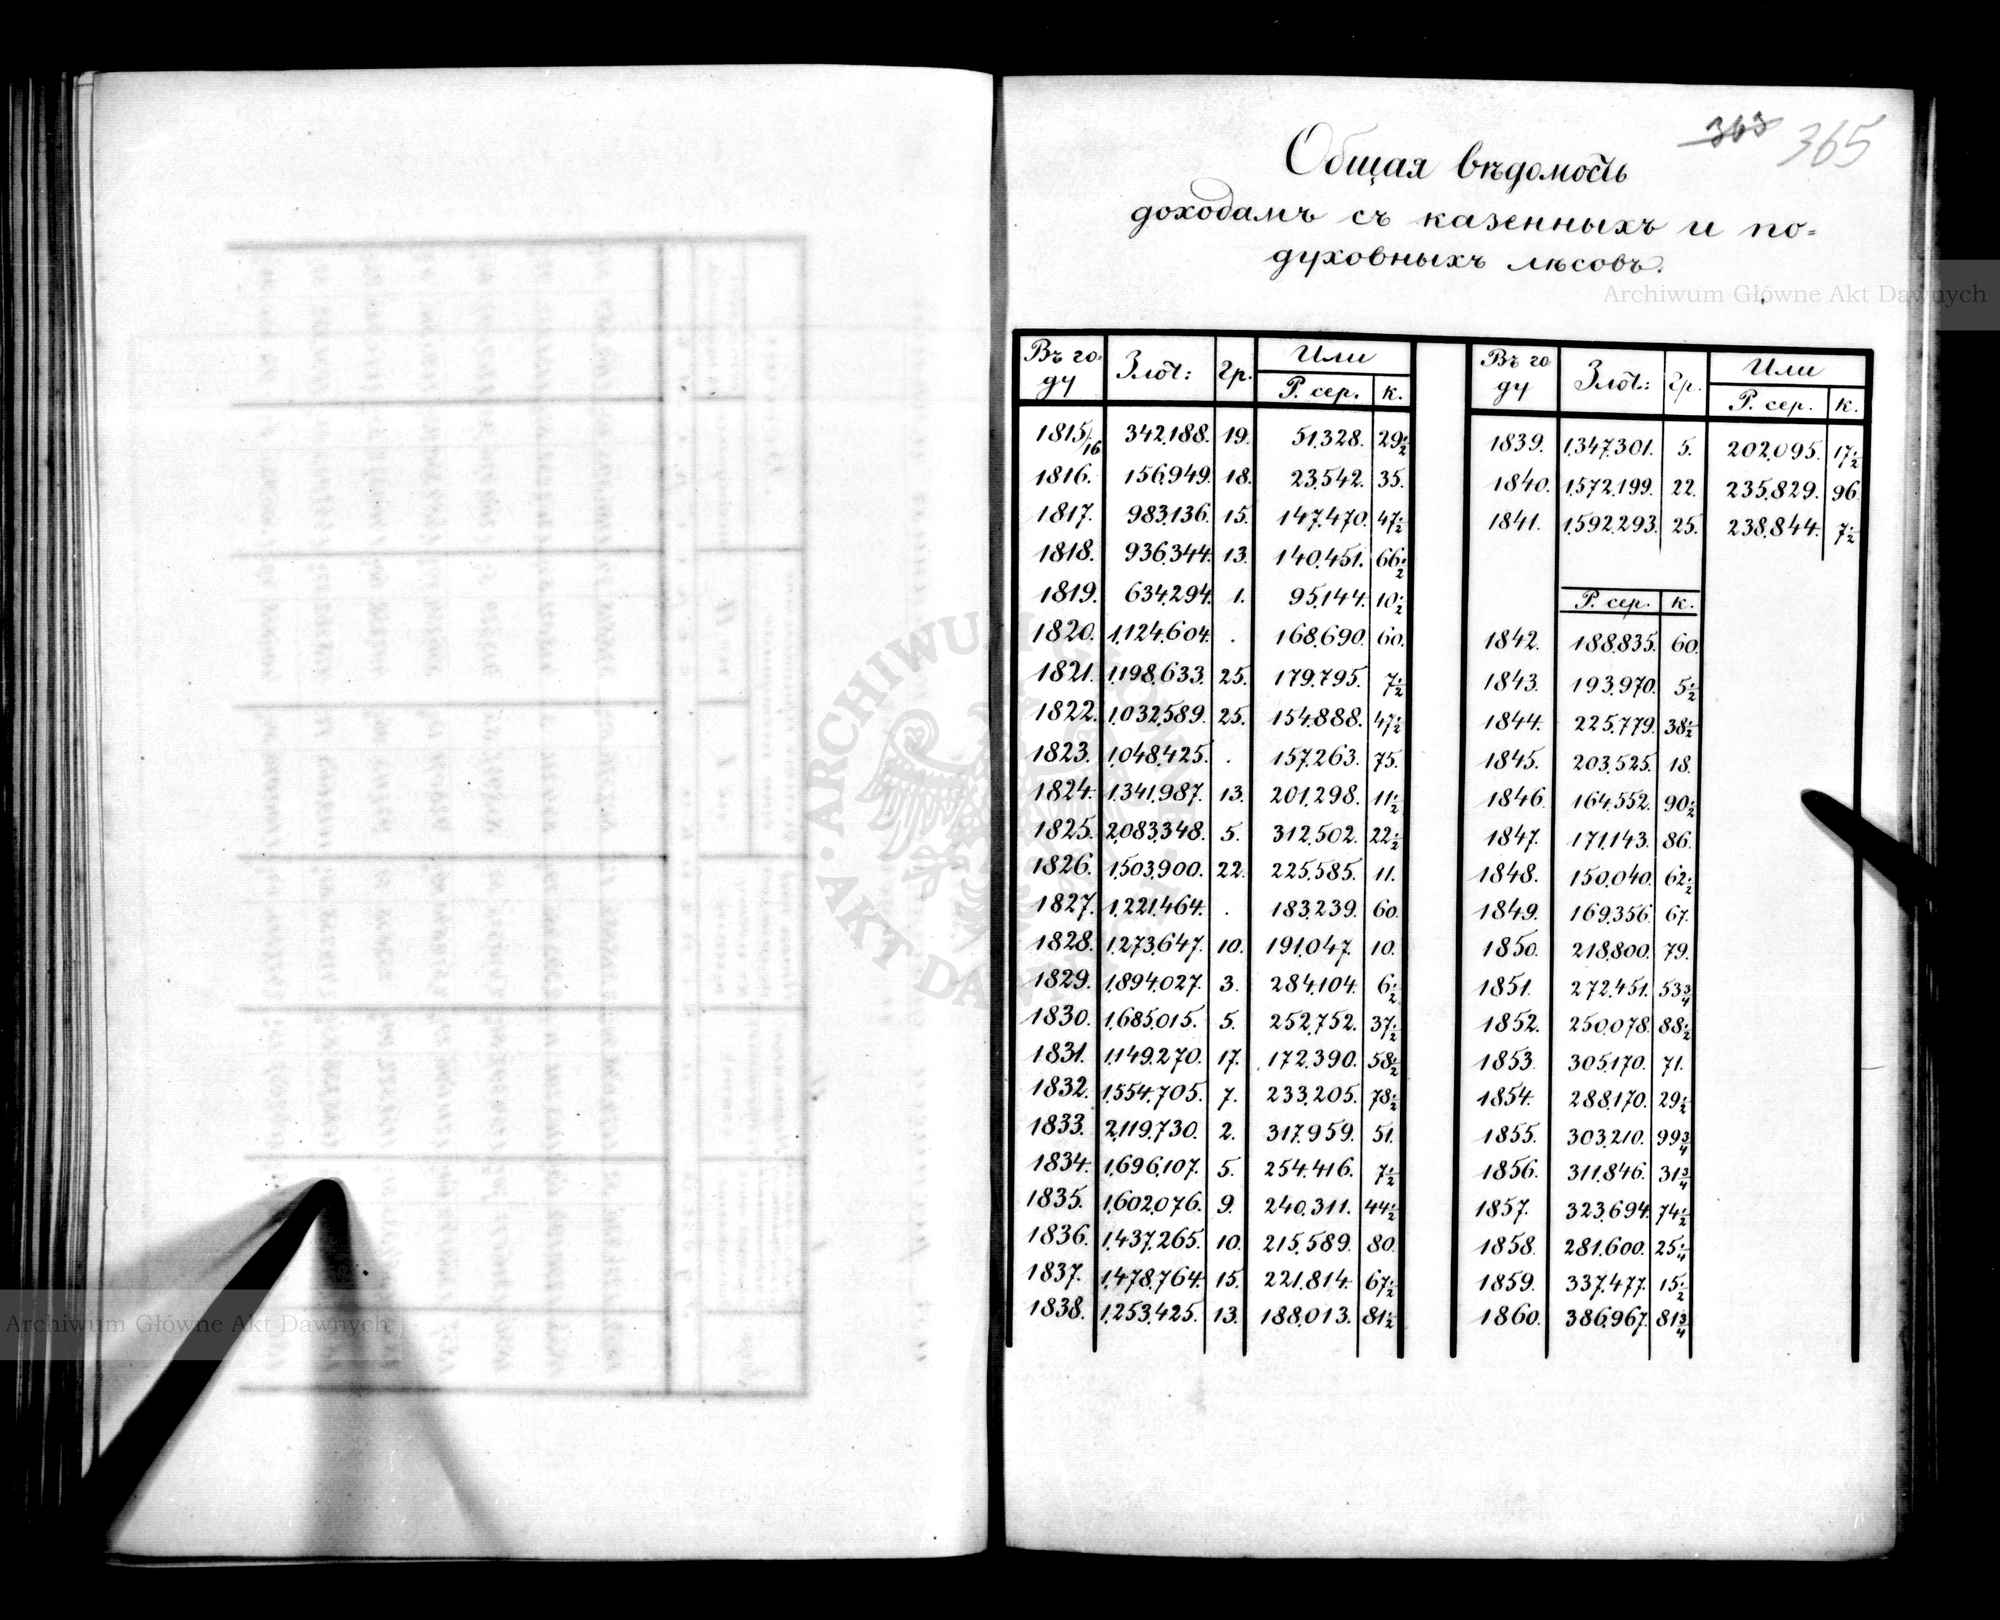 363 365
Общая вѣдомость
доходамъ съ казенныхъ и по=
духовныхъ лѣсовъ.
Archiwum Główne Akt Dawnych
Въ го- Злот: гр. Или
ду Р. сер. к.
1815/16 342,188. 19. 51,328. 29½
1816. 156,949. 18. 23,542. 35.
1817. 983,136. 15. 147,470. 47½
1818. 936,344. 13. 140,451. 66½
1819. 634,294. 1. 95,144. 10½
1820. 1,124,604. . 168,690. 60.
1821. 1,198,633. 25. 179,795. 7½
1822. 1,032,589. 25. 154,888. 47½
1823. 1,048,425. . 157,263. 75.
1824. 1,341,987. 13. 201,298. 11½
1825. 2,083,348. 5. 312,502. 22½
1826. 1,503,900. 22. 225,585. 11.
1827. 1,221,464. . 183,239. 60.
1828. 1,273,647. 10. 191,047. 10.
1829. 1,894,027. 3. 284,104. 6½
1830. 1,685,015. 5. 252,752. 37½
1831. 1,149,270. 17. 172,390. 58½
1832. 1,554,705. 7. 233,205. 78½
1833. 2,119,730. 2. 317,959. 51.
1834. 1,696,107. 5. 254,416. 7½
1835. 1,602,076. 9. 240,311. 44½
1836. 1,437,265. 10. 215,589. 80.
1837. 1,478,764. 15. 221,814. 67½
1838. 1,253,425. 13. 188,013. 81½
Въ го Злот: гр. Или
ду Р. сер. к.
1839. 1,347,301. 5. 202,095. 17½
1840. 1,572,199. 22. 235,829. 96.
1841. 1,592,293. 25. 238,844. 7½
Р. сер. к.
1842. 188,835. 60.
1843. 193,970. 5½
1844. 225,779. 38½
1845. 203,525. 18.
1846. 164,552. 90½
1847. 171,143. 86.
1848. 150,040. 62½
1849. 169,356. 67.
1850. 218,800. 79.
1851. 272,451. 53¾
1852. 250,078. 88½
1853. 305,170. 71.
1854. 288,170. 29½
1855. 303,210. 99¾
1856. 311,846. 31¾
1857. 323,694. 74½
1858. 281,600. 25¼
1859. 337,477. 15½
1860. 386,967. 81¾
ARCHIWUM GŁÓWNE AKT DAWNYCH
Archiwum Główne Akt Dawnych